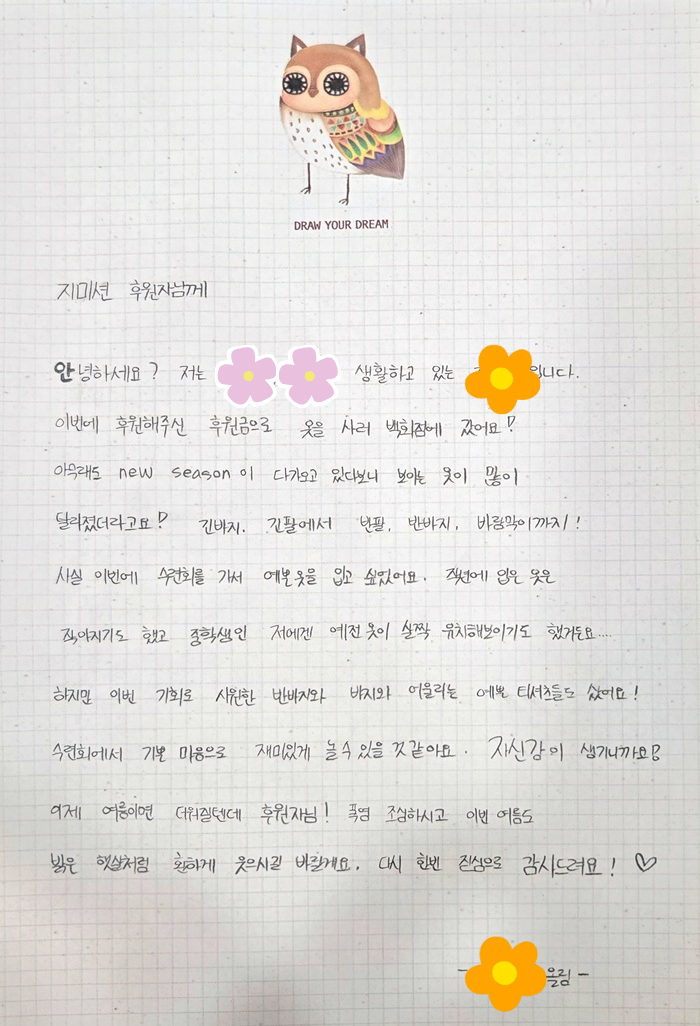 DRAW YOUR DREAM
지미션 후원자님께
안녕하세요? 저는 생활하고 있는 입니다.
이번에 후원해주신 후원금으로 옷을 사러 백화점에 갔어요!
아무래도 new season이 다가오고 있다보니 보이는 옷이 많이
달라졌더라고요! 긴바지, 긴팔에서 반팔, 반바지, 바람막이까지!
사실 이번에 수련회를 가서 예쁜옷을 입고 싶었어요. 작년에 입은 옷은
작아지기도 했고 중학생인 저에겐 예전 옷이 살짝 유치해보이기도 했거든요....
하지만 이번 기회로 시원한 반바지와 바지와 어울리는 예쁜 티셔츠들도 샀어요!
수련회에서 기쁜 마음으로 재미있게 놀 수 있을 것 같아요. 자신감이 생기니까요!
이제 여름이면 더워질텐데 후원자님! 폭염 조심하시고 이번 여름도
밝은 햇살처럼 환하게 웃으시길 바랄게요. 다시 한번 진심으로 감사드려요! ♡
- 올림 -